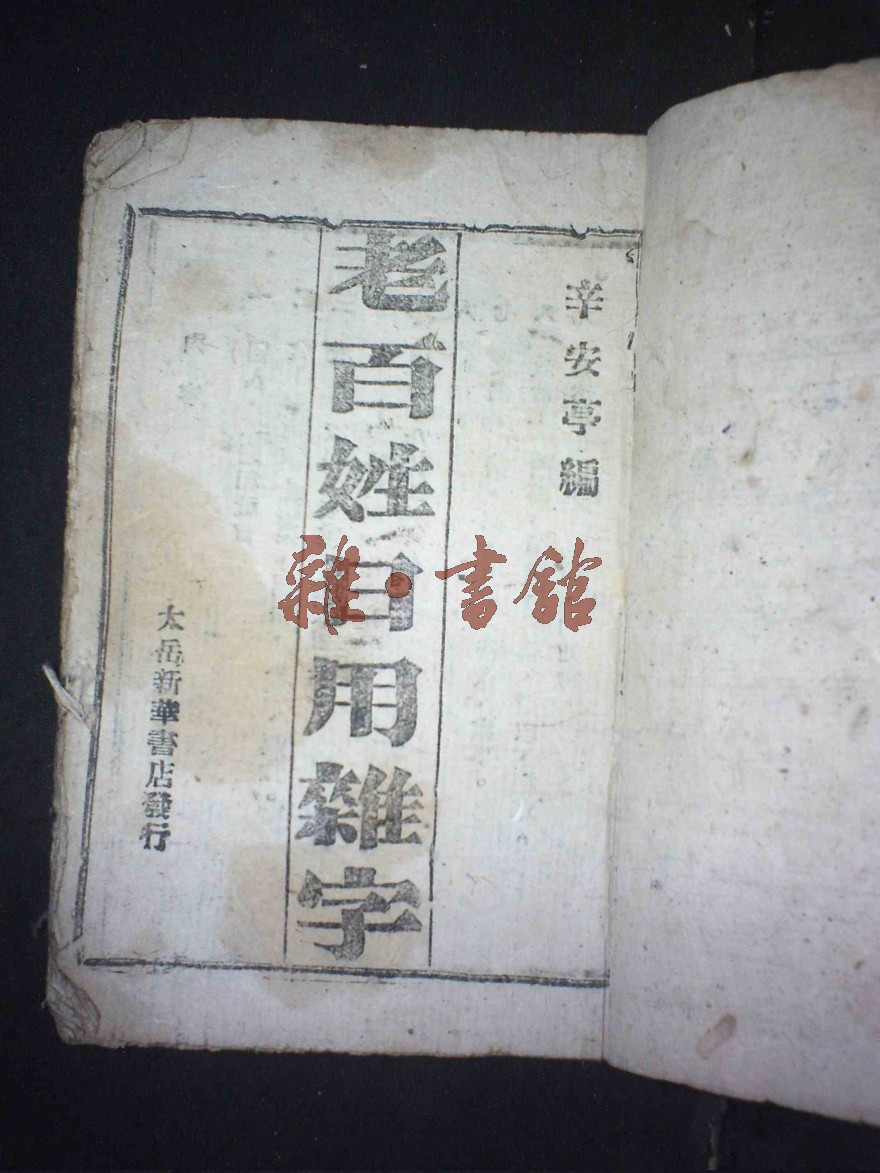 辛安亭編
老百姓日用雜字
太岳新華書店發行
雜·書館